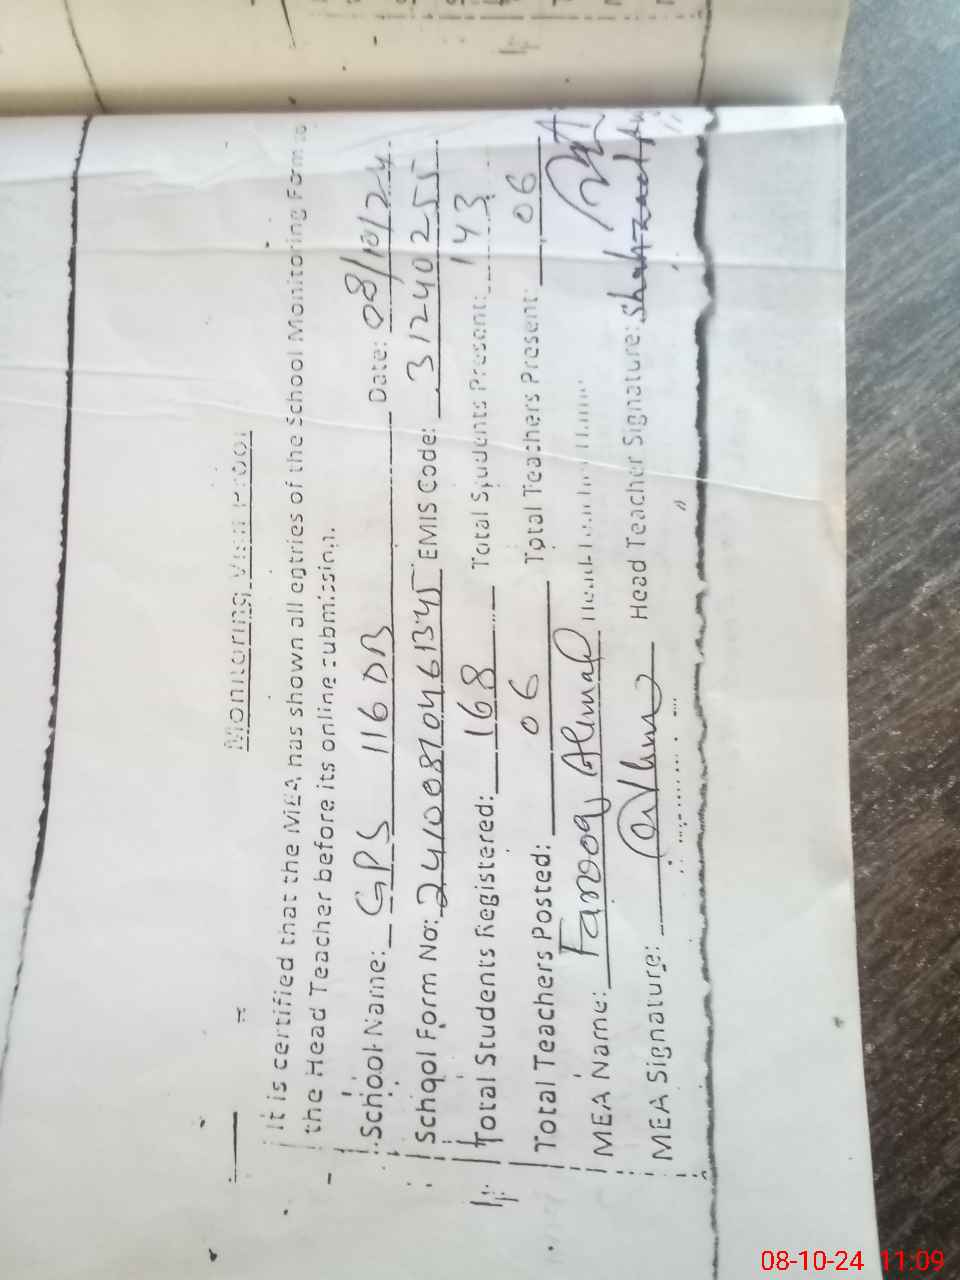 Monitoring Visit Proof
It is certified that the MEA has shown all entries of the School Monitoring Form to
the Head Teacher before its online submission.
School Name: GPS 116 DB Date: 08/10/24
School Form No: 2410081046 1345 EMIS Code: 31240255
Total Students Registered: 168 Total Students Present: 143
Total Teachers Posted: 06 Total Teachers Present: 06
MEA Name: Farooq Ahmad
MEA Signature: Head Teacher Signature: Shahzad
08-10-24 11:09